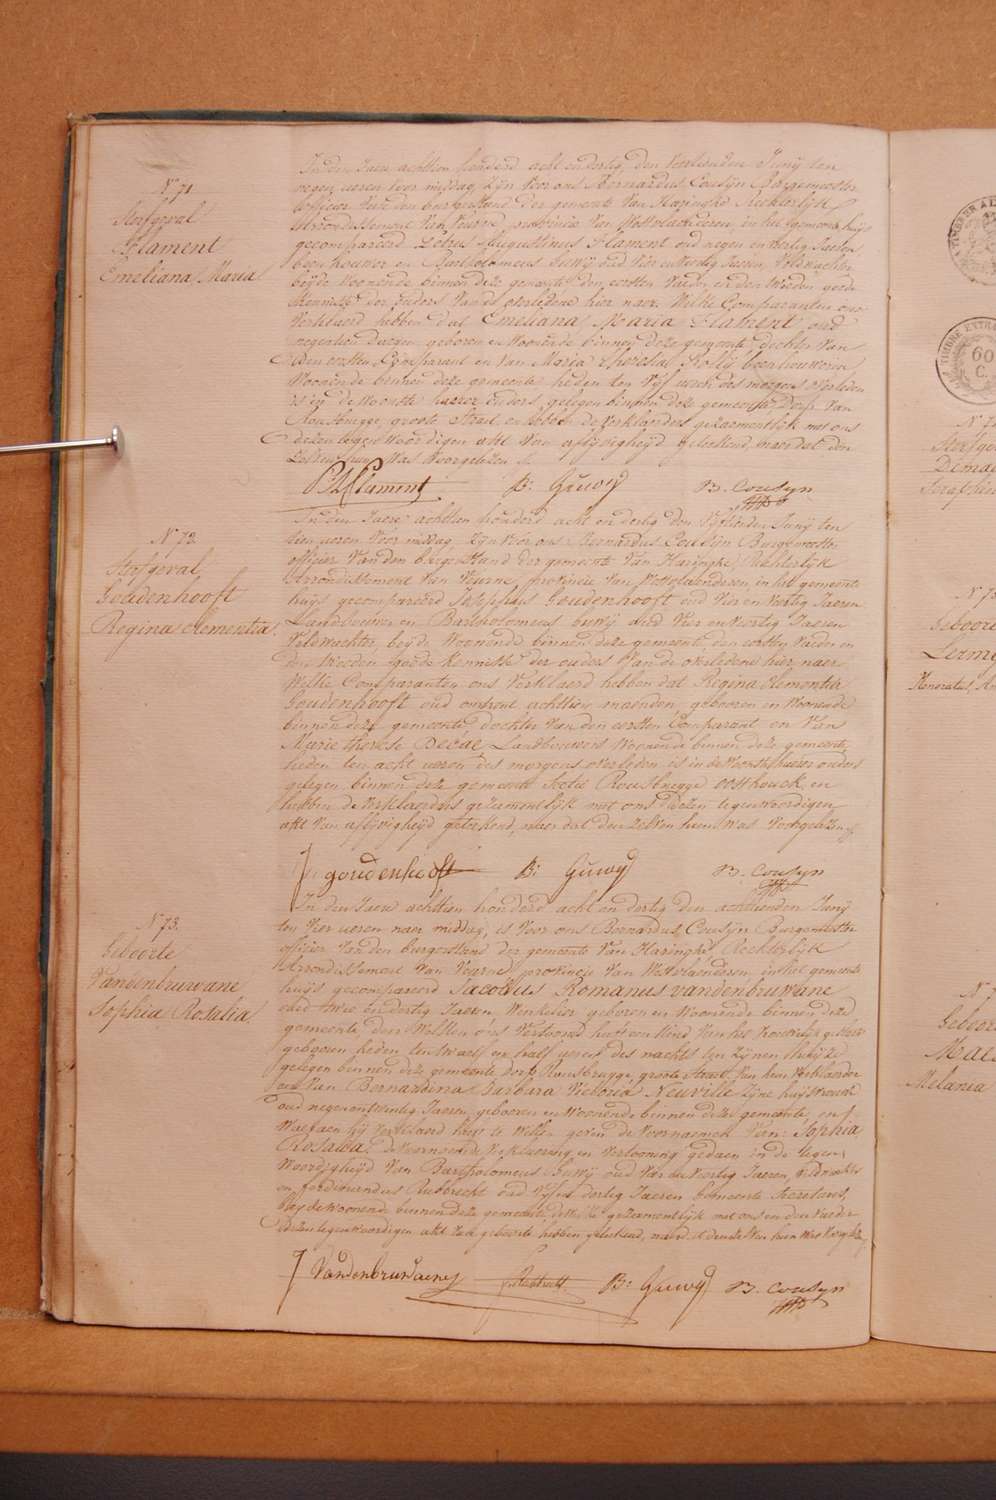 N° 71
Sterfgeval
Flament
Emeliana Maria
In den Jaere achttien honderd acht en dertig, den veertienden Junij ten
negen ueren voor middag, zijn voor ons Bernardus Cousyn Borgemeester
officier van den burgerstand der gemeente van Haringhe Rechterlijk
Arrondissement van Veurne, provincie van Westvlaenderen, in het gemeente huys
gecompareerd Petrus Augustinus Flament oud negen en dertig Jaeren
beenhouwer en Bartholomeus Guwy oud vier en veertig Jaeren, Veldwachter
beyde woonende binnen deze gemeente, den eersten Vader en den tweeden goede
kennisse der ouders van de overledene hier naer. Welke Comparanten ons
Verklaerd hebben dat Emeliana Maria Flament oud
negentien Daegen geboren en woonende binnen deze gemeente, dochter van
den eersten Comparant en van Maria Theresia Rolly beenhouweren
woonende binnen deze gemeente heden ten vijf ueren des morgens overleden
is in de woonste haerer ouders, gelegen binnen deze gemeente Dorp van
Rousbrugge groote Straet en hebben de verklaerders gezaementlijk met ons
dezen tegenwoordigen akt van aflijvigheyd geteekend, naer dat den
zelven hun was voorgelezen
P A Flament B: Guwy B. Cousyn
N° 72
Sterfgeval
Goudenhooft
Regina Clementia
In den Jaere achttien honderd acht en dertig den vyftienden Junij ten
tien ueren voor middag zijn voor ons Bernardus Cousyn Burgemeester
officier van den burgerstand der gemeente van Haringhe, Rechterlijk
Arrondissement van Veurne, provincie van Westvlaenderen, in het gemeente
huys gecompareerd Josephus Goudenhooft oud vier en veertig Jaeren
Landbouwer en Bartholomeus Guwy oud vier en veertig Jaeren
Veldwachter beyde woonende binnen deze gemeente, den eersten Vader en
den tweeden goede kennisse der ouders van de overledene hier naer
Welke Comparanten ons Verklaerd hebben dat Regina Clementia
Goudenhooft oud omtrent achttien maenden, geboren en woonende
binnen deze gemeente, dochter van den eersten Comparant en van
Marie therese Decae Landbouwers woonende binnen deze gemeente,
heden ten acht ueren des morgens overleden is in de woonste haerer ouders
gelegen binnen deze gemeente sectie Rousbrugge oosthouck, en
hebben de verklaerders gezaementlijk met ons dezen tegenwoordigen
akt van aflijvigheyd geteekend, naer dat den zelven hun was voorgelezen
J goudenhooft B: Guwy B. Cousyn
N° 73.
Geboorte
Vandenbruwane
Sophia Rosalia
In den Jaere achttien honderd acht en dertig den achttienden Junij
ten vier ueren naer middag, is voor ons Bernardus Cousyn Burgemeester
officier van den burgerstand der gemeente van Haringhe, Rechterlijk
Arrondissement van Veurne, provincie van Westvlaenderen, in het gemeente
huys gecompareerd Jacobus Romanus vandenbruwane
oud twee en dertig Jaeren, Winkelier geboren en woonende binnen deze
gemeente, den Welken ons Vertoond heeft een kind van het vrouwelijk geslacht
geboren heden ten twaelf en half ueren des nachts ten zijnen huyze
gelegen binnen deze gemeente dorp Rousbrugge, groote Straet van hem Verklaerder
en van Bernardina Barbara Victoria Neuville zijne huysvrouw
oud negen en twintig Jaeren, geboren en woonende binnen deze gemeente, en
waer aen hij verklaerd heeft te willen geven de voornaemen van: Sophia
Rosalia. de voornoemde verklaering en vertooning gedaen in de tegen-
woordigheyd van Bartholomeus Guwy oud vier en veertig Jaeren, veldwachter
en ferdinandus Rubbrecht oud vijf en dertig Jaeren Gemeente Secretaris,
beyde woonende binnen deze gemeente, de welke gezaementlijk met ons en den Vader
dezen tegenwoordigen akt van geboorte hebben geteekend, naer dat den zelven hun was voorgelezen
J Vandenbruwaene f. Rubbrecht B: Guwy B. Cousyn
TIMBRE EXTRA
60
C.
N° 7
Sterfge
Demae
Seraphie
N° 7
Geboor
Lermy
Honoratus,
N° 7
Geboor
Mae
Melania